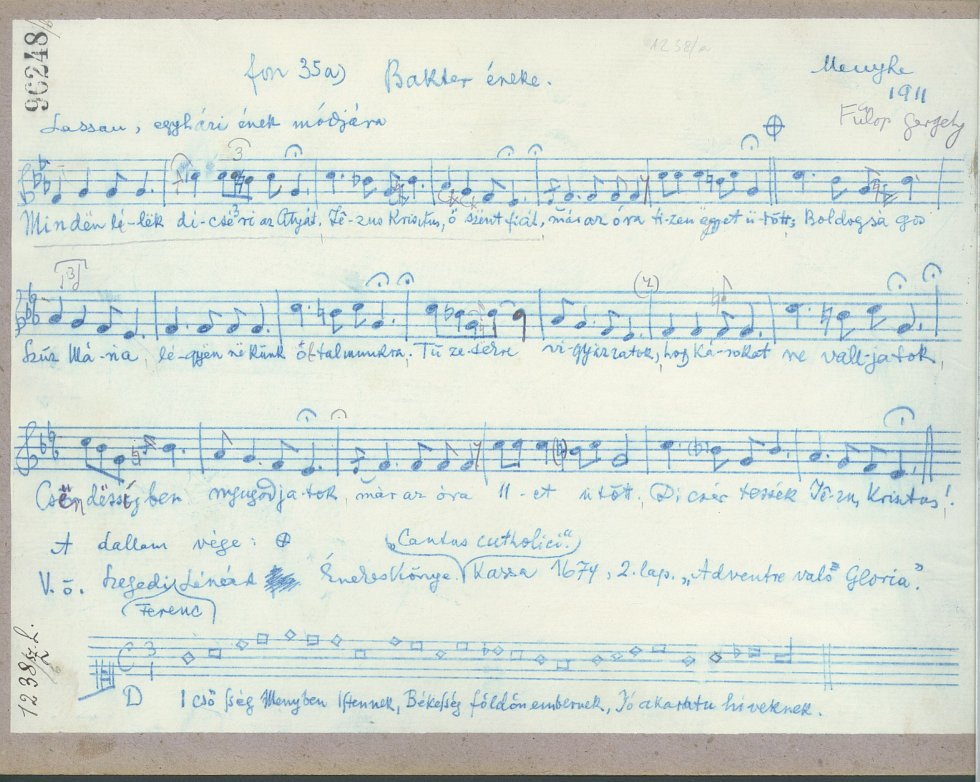 96248/b
1238/a
fon 35a) Bakter éneke.
Menyhe
1911
Fülöp Gergely
Lassan, egyházi ének módjára
Mindën lé-lëk di-csé'ri az Atyát, Jé-zus Kristus, ő szent fiát, már az óra ti-zen ëgyet ü-tött; Boldogsá gos
Szűz Má-ria, lé-gyën në künk óltalmunkra. Tű ze-tekre vi-gyázzatok, hogy ká-rokat ne vall-ja-tok,
Csëndëssígben nyugodja-tok, már az óra 11-et ütött, Dicsér tessék Jé-zus Kristus!
A dallam vége:
"Cantus catholici."
V. ö. Szegedi Lénárt Énekeskönyve. Kassa 1674, 2. lap. „Adventre való Gloria".
Ferenc
1238/z.L.
D I cső ſség Menyben Iſtennek, Békeſség földön embernek, Jó akaratu hiveknek.